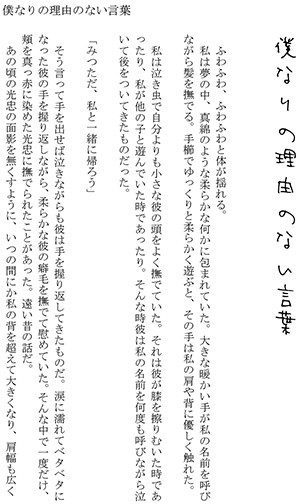 僕なりの理由のない言葉
僕なりの理由のない言葉
ふわふわ、ふわふわと体が揺れる。
私は夢の中、真綿のような柔らかな何かに包まれていた。大きな暖かい手が私の名前を呼び
ながら髪を撫でる。手櫛でゆっくりと柔らかく遊ぶと、その手は私の肩や背に優しく触れた。
私は泣き虫で自分よりも小さな彼の頭をよく撫でていた。それは彼が膝を擦りむいた時であ
ったり、私が他の子と遊んでいた時であったり。そんな時彼は私の名前を何度も呼びながら泣
いて後をついてきたものだった。
「みつただ、私と一緒に帰ろう」
そう言って手を出せば泣きながらも彼は手を握り返してきたものだ。涙に濡れてベタベタに
なった彼の手を握り返しながら、柔らかな彼の癖毛を撫でて慰めていた。そんな中で一度だけ、
頬を真っ赤に染めた光忠に撫でられたことがあった。遠い昔の話だ。
あの頃の光忠の面影を無くすように、いつの間にか私の背を超えて大きくなり、肩幅も広く